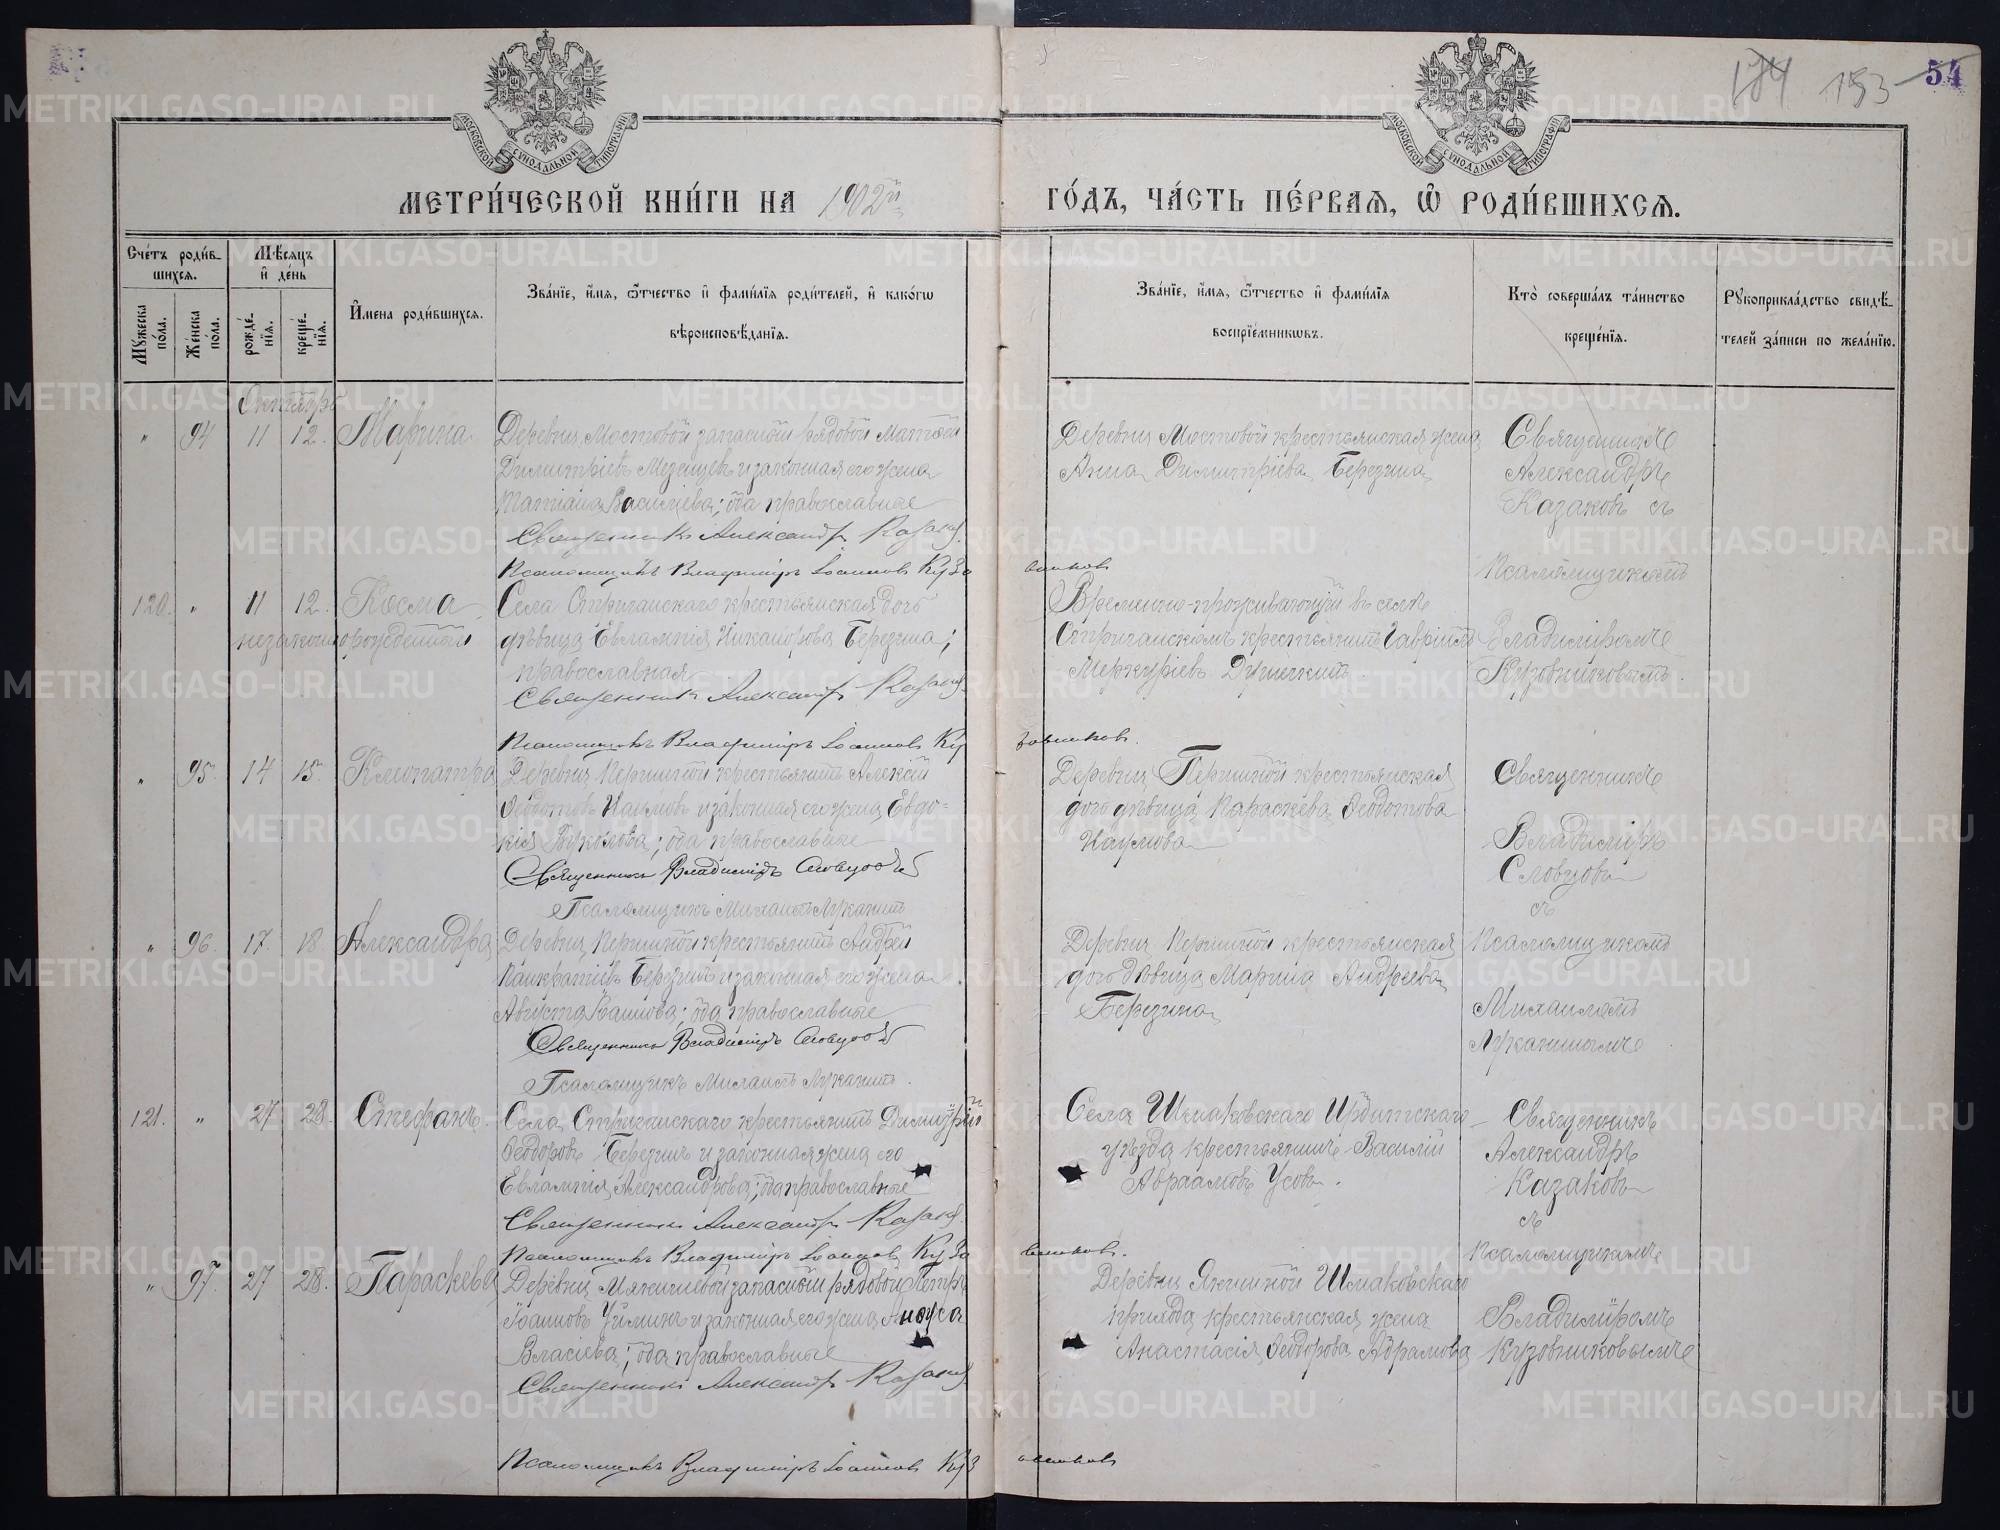 174 153 54
МОСКОВСКОЙ СУНОДАЛЬНОЙ ТИПОГРАФІИ
МОСКОВСКОЙ СУНОДАЛЬНОЙ ТИПОГРАФІИ
МЕТРИ́ЧЕСКОЙ КНИ́ГИ НА 1902й ГО́ДЪ, ЧА́СТЬ ПЕ́РВАѦ, Ѿ РОДИ́ВШИХСѦ.
Сче́тъ роди́в-
шихсѧ.
Мѣ́сѧцъ
и҆ де́нь
Мꙋжеска по́ла.
Же́нска по́ла.
рожде́-
нїѧ.
креще́-
нїѧ.
И҆мена роди́вшихсѧ.
Зва́нїе, и҆́мѧ, ѻ҆́тчество и҆ фами́лїѧ роди́телей, и҆ како́гѡ
вѣроисповѣ́данїѧ.
Зва́нїе, и҆́мѧ, ѻ҆́тчество и҆ фами́лїѧ
воспрїе́мникѡвъ.
Кто̀ соверша́лъ та́инство
креще́нїѧ.
Рꙋкоприкла́дство свидѣ́-
телей за́писи по жела́нїю.
Октябрь
" 94 11 12. Марина
Деревни Мостовой запасной рядовой Матѳей
Димитріевъ Мезенцевъ и законная его жена
Татіана Васильева; оба православные
Священникъ Александръ Казаков.
Псаломщикъ Владиміръ Іоанновъ Кузовников
Деревни Мостовой крестьянская жена
Анна Димитріева Березина
Священникъ
Александръ
Казаковъ съ
Псаломщикомъ
Владиміромъ
Кузовниковымъ.
120. " 11 12. Косма
незаконнорожденный
Села Стриганскаго крестьянская дочь
дѣвица Евлампія Никанорова Березина;
православная
Священникъ Александръ Казаков.
Псаломщикъ Владиміръ Іоанновъ Кузовников.
Временно-проживающій въ селѣ
Стриганскомъ крестьянинъ Гавріилъ
Меркуріевъ
" 95. 14 15. Клеопатра
Деревни Першиной крестьянинъ Алексій
Ѳеодотовъ Наумовъ и законная его жена Евдо-
кія Вуколова; оба православные
Священникъ Владиміръ Словцовъ
Псаломщикъ Михаилъ Луканинъ
Деревни Першиной крестьянская
дочь дѣвица Параскева Ѳеодотова
Наумова
Священникъ
Владиміръ
Словцовъ
съ
Псаломщикомъ
Михаиломъ
Луканинымъ
" 96. 17. 18. Александра
Деревни Першиной крестьянинъ Андрей
Панкратіевъ Березинъ и законная его жена
Августа Іоаннова; оба православные
Священникъ Владиміръ Словцовъ
Псаломщикъ Михаилъ Луканинъ.
Деревни Першиной крестьянская
дочь дѣвица Марина Андреева
Березина
121. " 27 28. Стефанъ.
Села Стриганскаго крестьянинъ Димитрій
Ѳеодоровъ Березинъ и законная жена его
Евлампія Александрова; оба православные
Священникъ Александръ Казаков.
Псаломщикъ Владиміръ Іоанновъ Кузовников.
Села Шмаковскаго Ирбитскаго
уѣзда крестьянинъ Василій
Авраамовъ Усовъ.
Священникъ
Александръ
Казаковъ
съ
псаломщикомъ
Владиміромъ
Кузовниковымъ
" 97. 27 28. Параскева
Деревни Мякишевой запасной рядовой Петръ
Іоанновъ Уйминъ и законная его жена Анѳуса
Власіева; оба православные
Священникъ Александръ Казаков
Псаломщикъ Владиміръ Іоанновъ Кузовников
Деревни Якшиной Шмаковскаго
прихода крестьянская жена
Анастасія Ѳеодорова Абрамова
METRIKI.GASO-URAL.RU